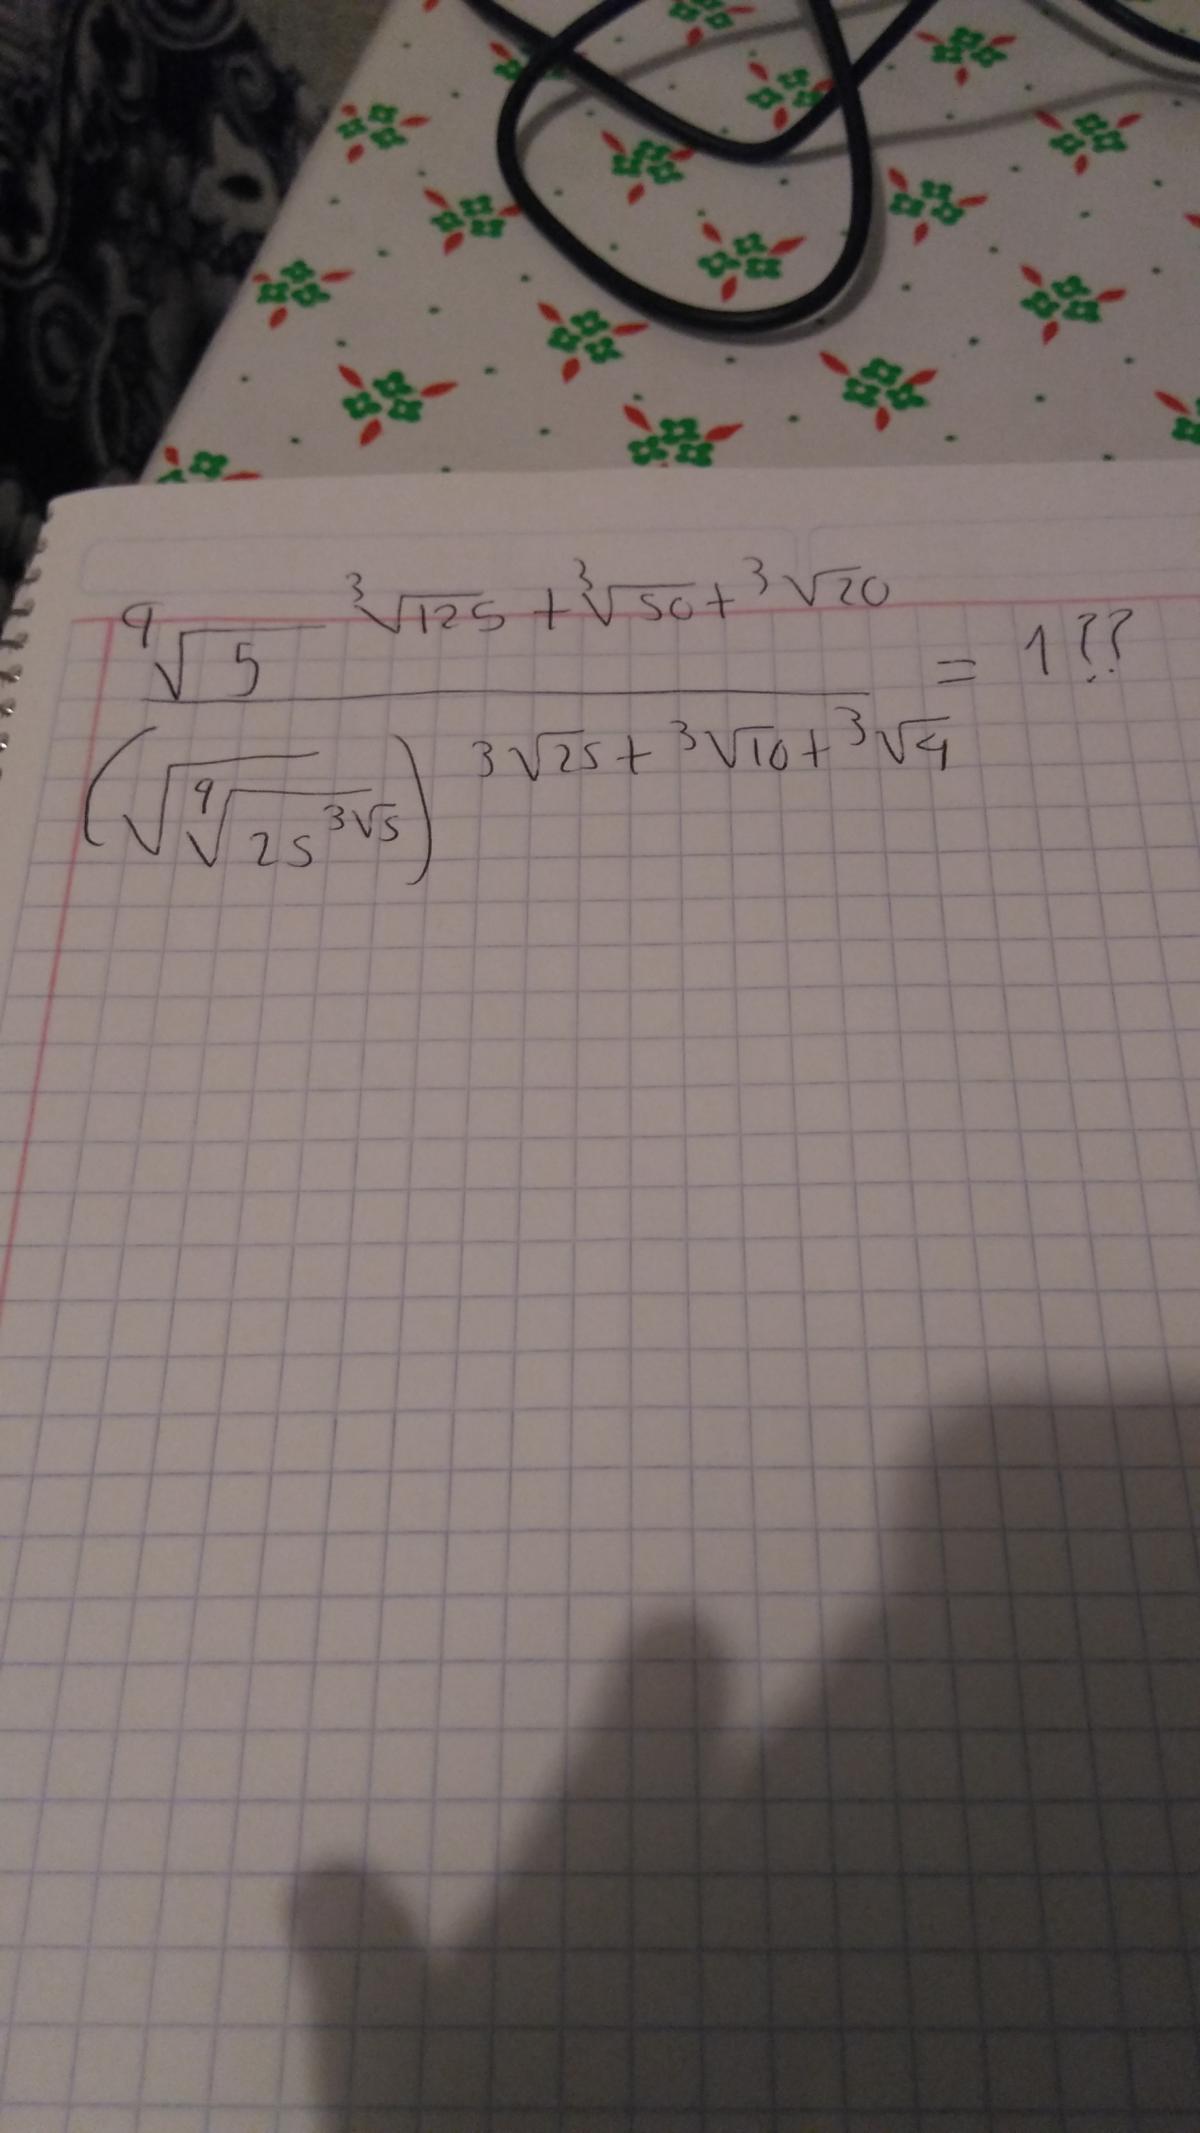 ⁹√5 ³√125 + ³√50 + ³√20
= 1??
(√⁹√25 ³√5) ³√25 + ³√10 + ³√4